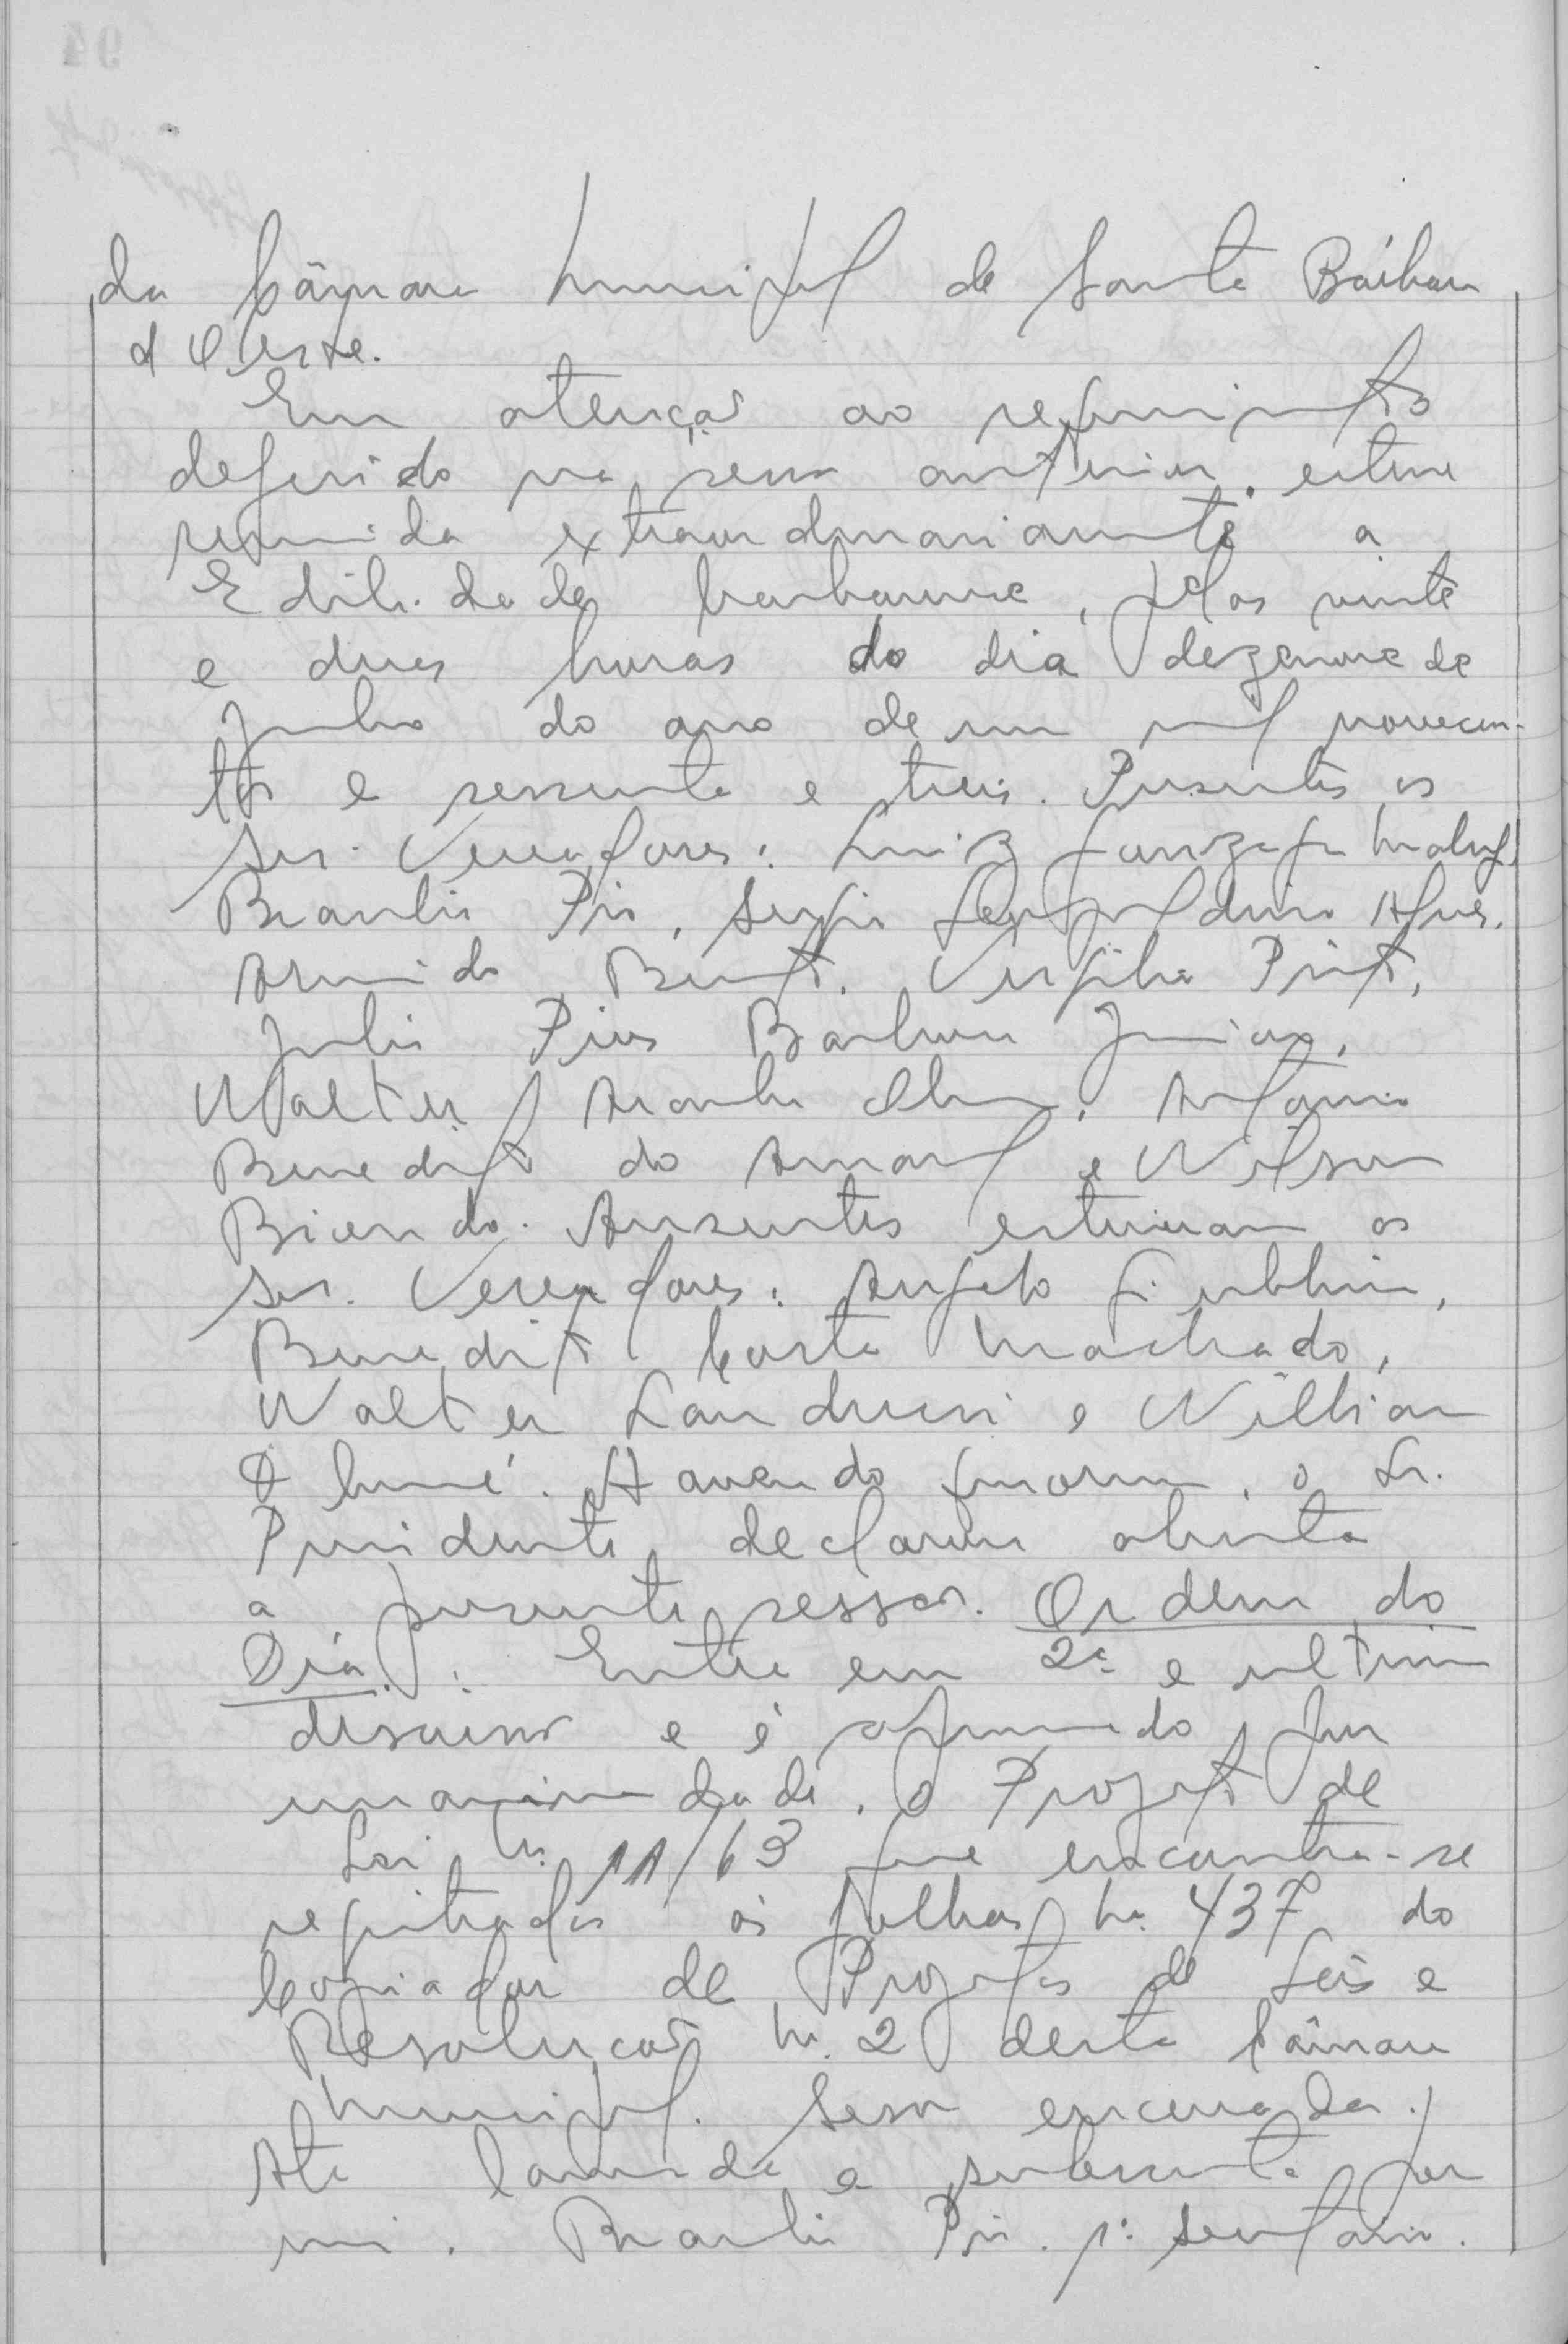 da Câmara Municipal de Santa Bárbara
d'Oeste.
Em atenção ao requerimento
deferido na sessão anterior, esteve
reunida extraordinariamente a
Edilidade barbarense, pelas vinte
e duas horas do dia dezenove de
Junho do ano de um mil novecen-
tos e sessenta e treis. Presentes os
Srs. Vereadores: Luiz Gonzaga Maluf,
Braulio Pio, Sergio Leopoldino Alves,
Armido Bento, Virgilio
Julio Pires Barbosa Junior,
Walter Aranha, Antonio
Benedito do Amaral e Wilson
Biondo. Ausentes estiveram os
Srs. Vereadores: Angelo Giubbini,
Benedito Costa Machado,
Walter Landucci e Willian
Havendo quorum, o Sr.
Presidente declarou aberta
a presente sessão. Ordem do
Dia: Entra em 2ª e ultima
discussão e é aprovado por
unanimidade, o Projeto de
Lei n. 11/63 que encontra-se
registrados ás folhas n. 437 do
Copiador de Projetos de Leis e
Resolução n. 2 desta Câmara
Municipal. Sessão encerrada.
Ata lavrada e subscrita por
mi. Braulio Pio. 1º Secretario.